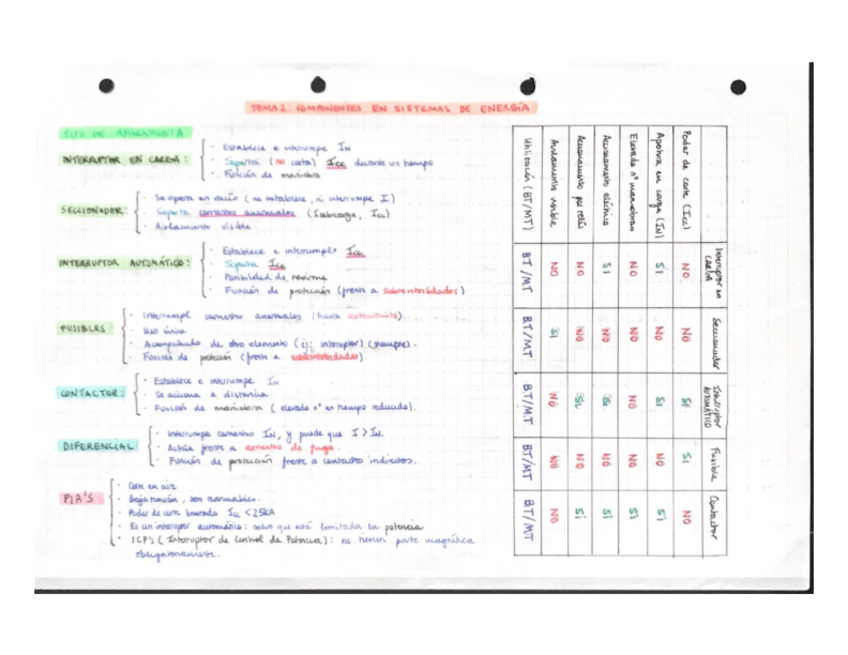 TEMA 2: COMPONENTES EN SISTEMAS DE ENERGÍA
TIPO DE APARAMENTA
INTERRUPTOR EN CARGA:
· Establece e interrumpe IN
· Soporta (no corta) Icc durante un tiempo
· Función de maniobra
SECCIONADOR:
· Se opera en vacío (no establece, ni interrumpe I)
· Soporta corrientes anormales (Isobrecarga, Icc)
· Aislamiento visible
INTERRUPTOR AUTOMÁTICO:
· Establece e interrumpe Icc
· Soporta Icc
· Posibilidad de rearme
· Función de protección (frente a sobreintensidades)
FUSIBLES
· Interrumpe corrientes anormales (hasta
· Uso único
· Acompañado de otro elemento (ej: interruptor) (siempre).
· Función de protección (frente a sobreintensidades)
CONTACTOR:
· Establece e interrumpe IN
· Se acciona a distancia
· Función de maniobra (elevado nº en tiempo reducido).
DIFERENCIAL
· Interrumpe corrientes IN, y puede que I > IN.
· Actúa frente a corrientes de fuga.
· Función de protección frente a contactos indirectos.
PIA'S
· Corte en aire
· Baja tensión, son rearmables.
· Poder de corte limitado Icc < 25kA
· Es un interruptor automático: salvo que está limitada la potencia
· ICP's (Interruptor de Control de Potencia): no tienen parte magnética
obligatoriamente.
Interruptor en CARGA Seccionador Interruptor AUTOMÁTICO Fusible Contactor
Poder de corte (Icc) NO NO SI SI NO
Apertura en carga (IN) SI NO SI NO SI
Elevado nº maniobras NO NO NO NO SI
Accionamiento eléctrico SI NO SI NO SI
Accionamiento por relés NO NO SI NO SI
Aislamiento visible NO SI NO NO NO
Utilización (BT/MT) BT/MT BT/MT BT/MT BT/MT BT/MT